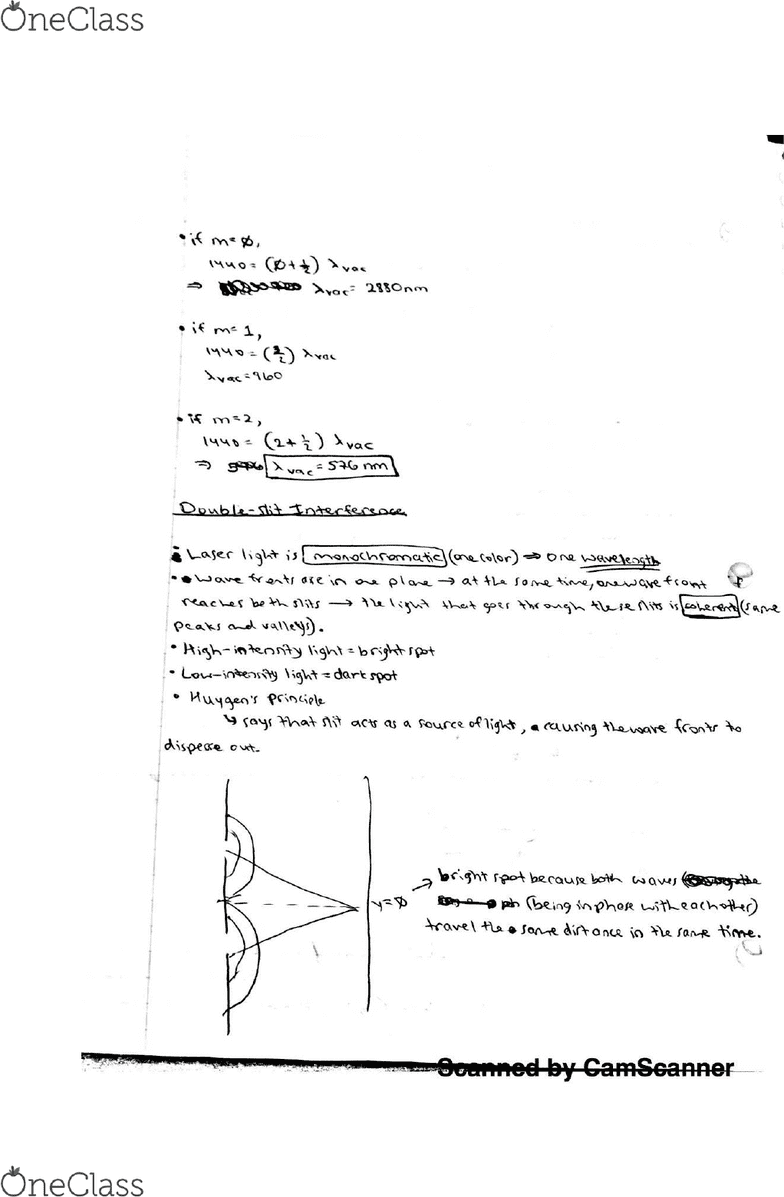 OneClass
• if m=Ø,
1440 = (Ø+½) λvac
⇒ λvac = 2880nm
• if m=1,
1440 = (3/2) λvac
λvac = 960
• if m=2,
1440 = (2+½) λvac
⇒ λvac = 576 nm
Double-slit Interference
• Laser light is monochromatic (one color) ⇒ one wavelength
• Wave fronts are in one plane → at the same time, one wave front
reaches both slits → the light that goes through these slits is coherent (same
peaks and valleys).
• High-intensity light = bright spot
• Low-intensity light = dark spot
• Huygen's principle
↳ says that slit acts as a source of light, causing the wave fronts to
disperse out.
→ bright spot because both waves
y=Ø
(being in phase with each other)
travel the same distance in the same time.
Scanned by CamScanner
OneClass